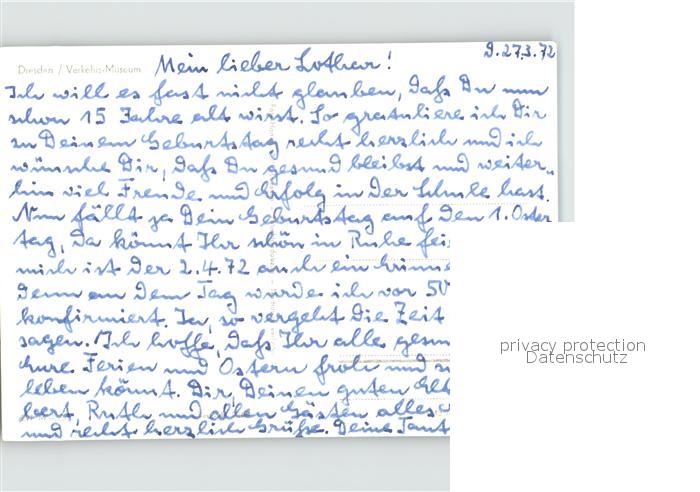 D. 27.3.72
Dresden / Verkehrs-Museum
Mein lieber Lothar!
Ich will es fast nicht glauben, daß Du nun
schon 15 Jahre alt wirst. So gratuliere ich Dir
zu Deinem Geburtstag recht herzlich und ich
wünsche Dir, daß Du gesund bleibst und weiter-
hin viel Freude und Erfolg in der Schule hast.
Nun fällt ja Dein Geburtstag auf den 1. Oster
tag, da könnt Ihr schön in Ruhe fei
mich ist der 2.4.72 auch ein Erinne
denn an dem Tag wurde ich vor 50
konfirmiert. Ja, so vergeht die Zeit
sagen. Ich hoffe, daß Ihr alle gesun
Eure Ferien und Ostern froh und
leben könnt. Dir, Deinen guten Elt
bert, Ruth und allen Gästen alles
und recht herzlich Grüße. Deine Tant
privacy protection
Datenschutz